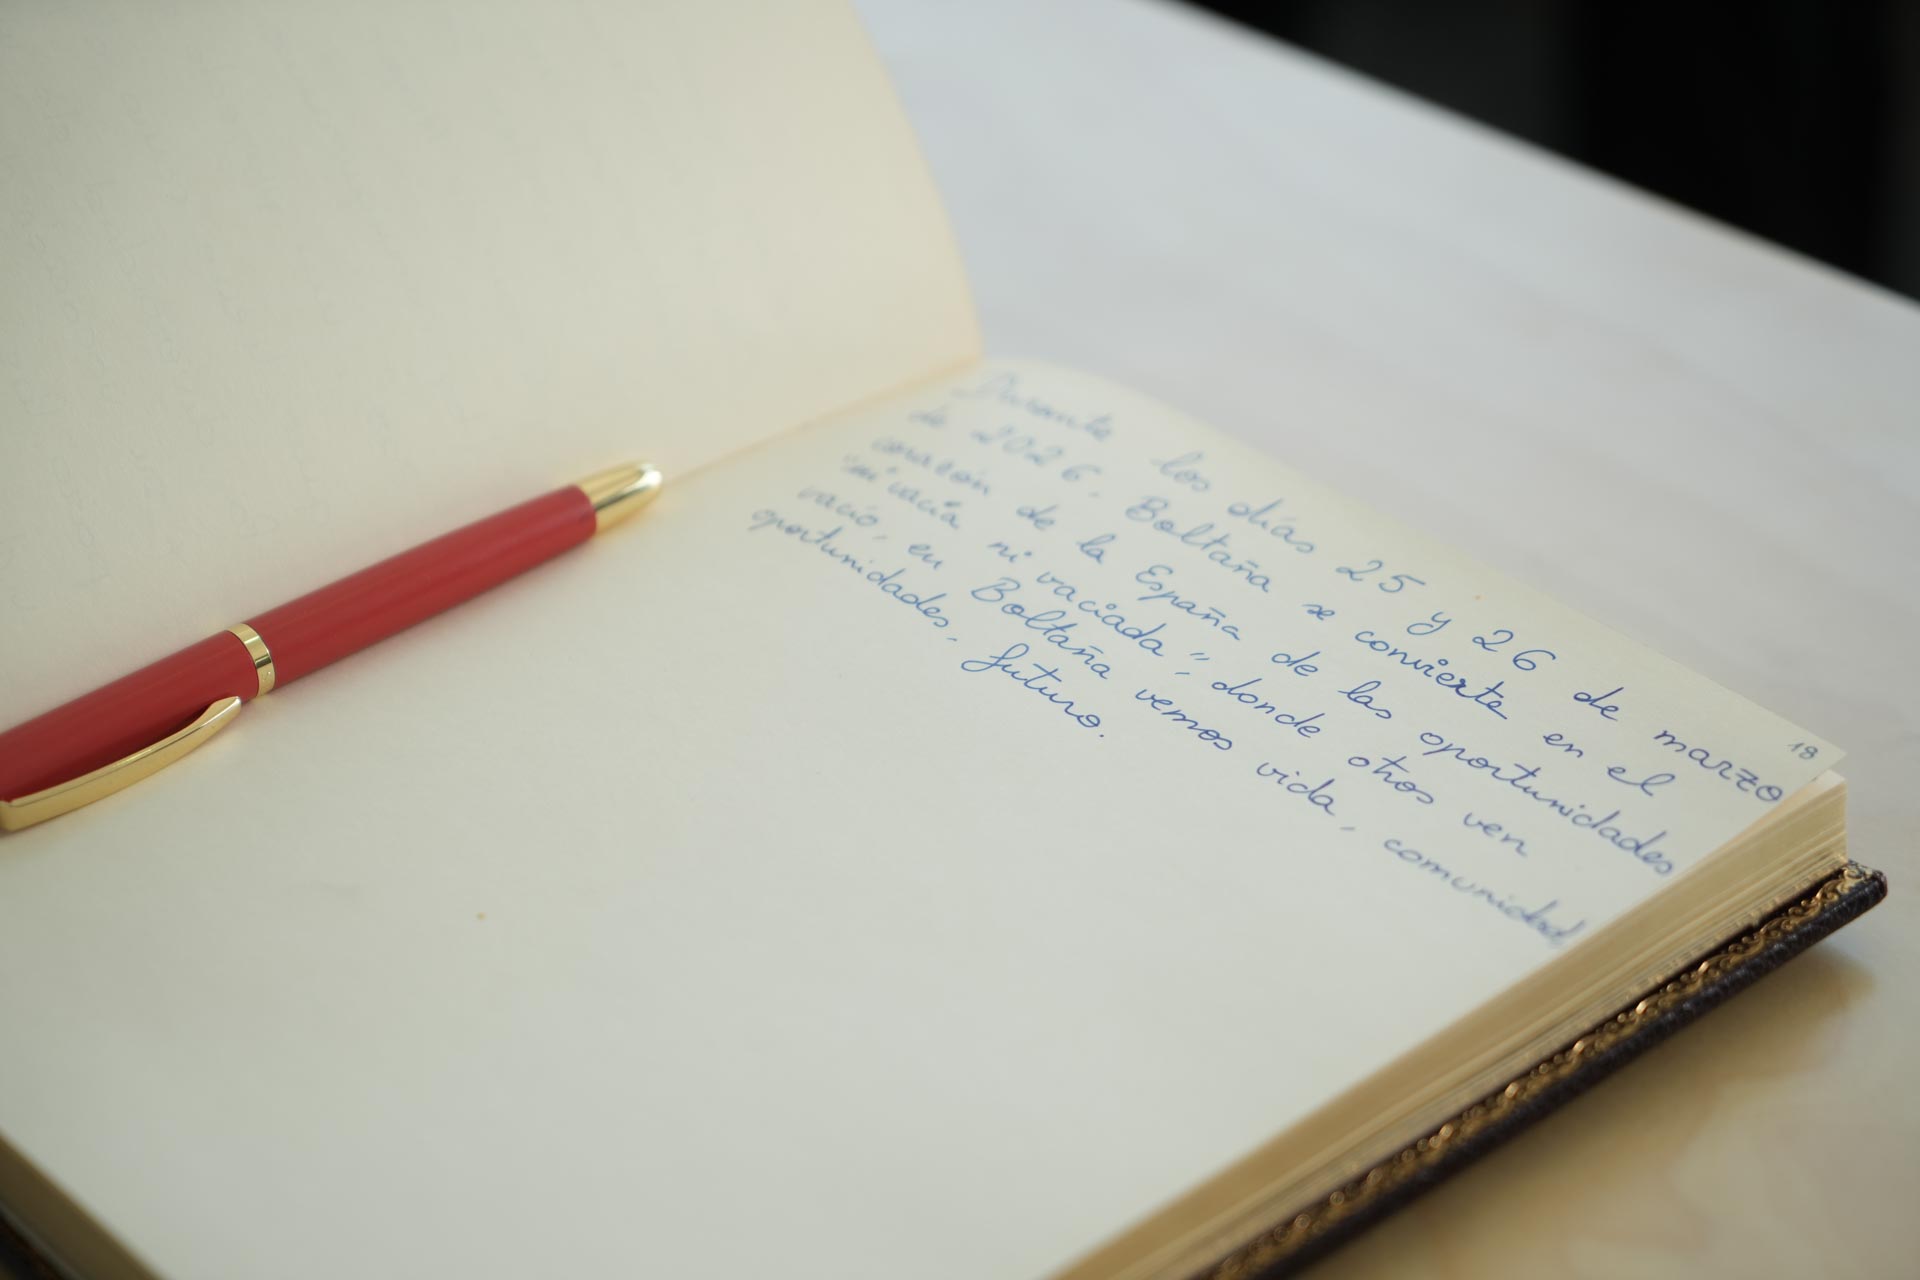 18
Durante los días 25 y 26 de marzo
de 2026, Boltaña se convierte en el
corazón de la España de las oportunidades
"ni vacía ni vaciada", donde otros ven
vacío, en Boltaña vemos vida, comunidad
oportunidades, futuro.